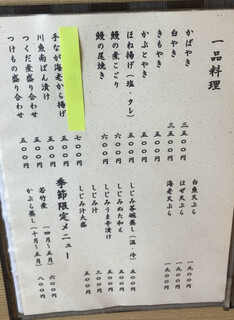 一品料理
かばやき 三五〇〇
白やき 三五〇〇
きもやき 五〇〇
かぶとやき 五〇〇
ほね揚げ（塩・タレ） 五〇〇
鰻の煮こごり 六〇〇
鰻の尾焼き 六〇〇
七〇〇
手なが海老から揚げ 五〇〇
川魚南ばん漬け 五〇〇
つくだ煮盛り合わせ 五〇〇
つけもの盛り合わせ 五〇〇
白魚天ぷら 一九〇〇
はぜ天ぷら 一九〇〇
海老天ぷら 一九〇〇
しじみ茶碗蒸し（温・冷） 五〇〇
しじみぬた和え 五〇〇
しじみうま辛漬け 五〇〇
しじみ汁 三〇〇
しじみ汁大盛 五〇〇
季節限定メニュー
若竹煮（四月～五月） 六〇〇
かぶら蒸し（十月～二月） 八〇〇